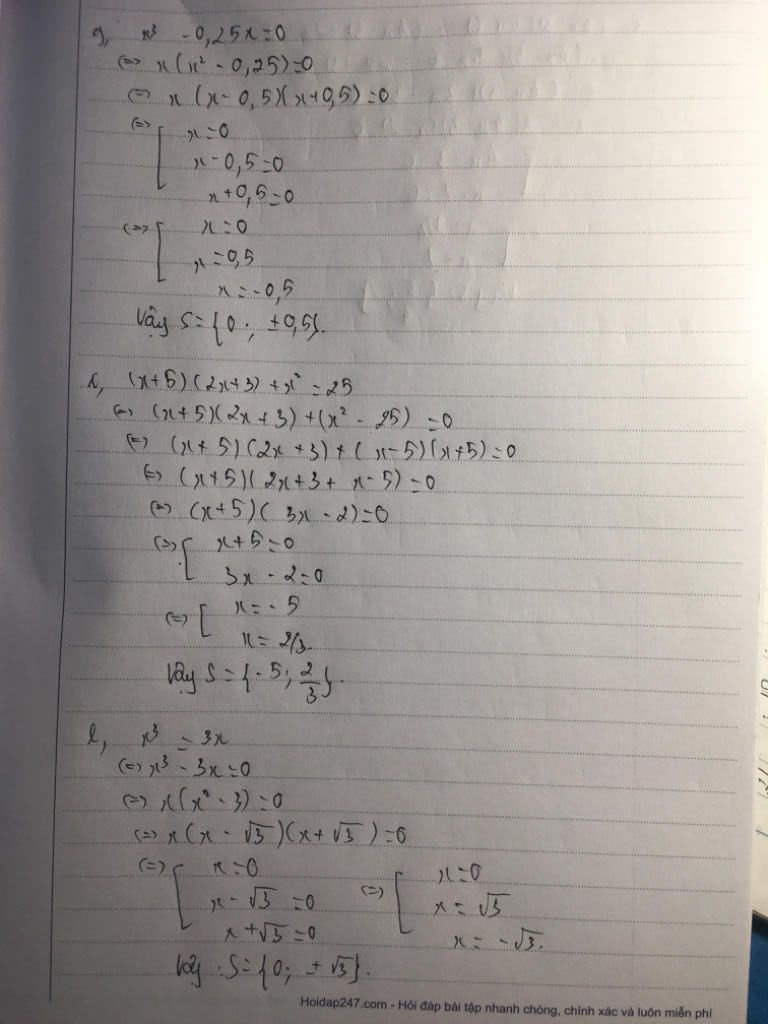 g, x³ - 0,25x=0
(=) x(x² - 0,25)=0
(=) x (x- 0,5)(x+0,5)=0
(=) [ x=0
x-0,5=0
x+0,5=0
(=) [ x=0
x=0,5
x=-0,5
Vậy S={0; ±0,5}.
k, (x+5)(2x+3)+x²=25
(=) (x+5)(2x+3)+(x² - 25) =0
(=) (x+5)(2x+3)+(x-5)(x+5)=0
(=) (x+5)(2x+3+ x-5)=0
(=) (x+5)( 3x-2)=0
(=) [ x+5=0
3x-2=0
(=) [ x=-5
x= 2/3.
Vậy S={-5; 2/3}.
l, x³ = 3x
(=) x³ - 3x=0
(=) x(x² - 3)=0
(=) x(x - √3)(x+ √3)=0
(=) [ x=0 (=) [ x=0
x-√3 =0 x = √3
x+√3=0 x= -√3.
Vậy S={0; ±√3}.
Hoidap247.com - Hỏi đáp bài tập nhanh chóng, chính xác và luôn miễn phí